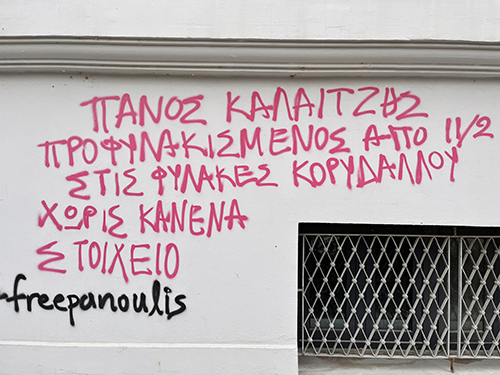 ΠΑΝΟΣ ΚΑΛΑΙΤΖΗΣ
ΠΡΟΦΥΛΑΚΙΣΜΕΝΟΣ ΑΠΟ 11/2
ΣΤΙΣ ΦΥΛΑΚΕΣ ΚΟΡΥΔΑΛΛΟΥ
ΧΩΡΙΣ ΚΑΝΕΝΑ
ΣΤΟΙΧΕΙΟ
-freepanoulis